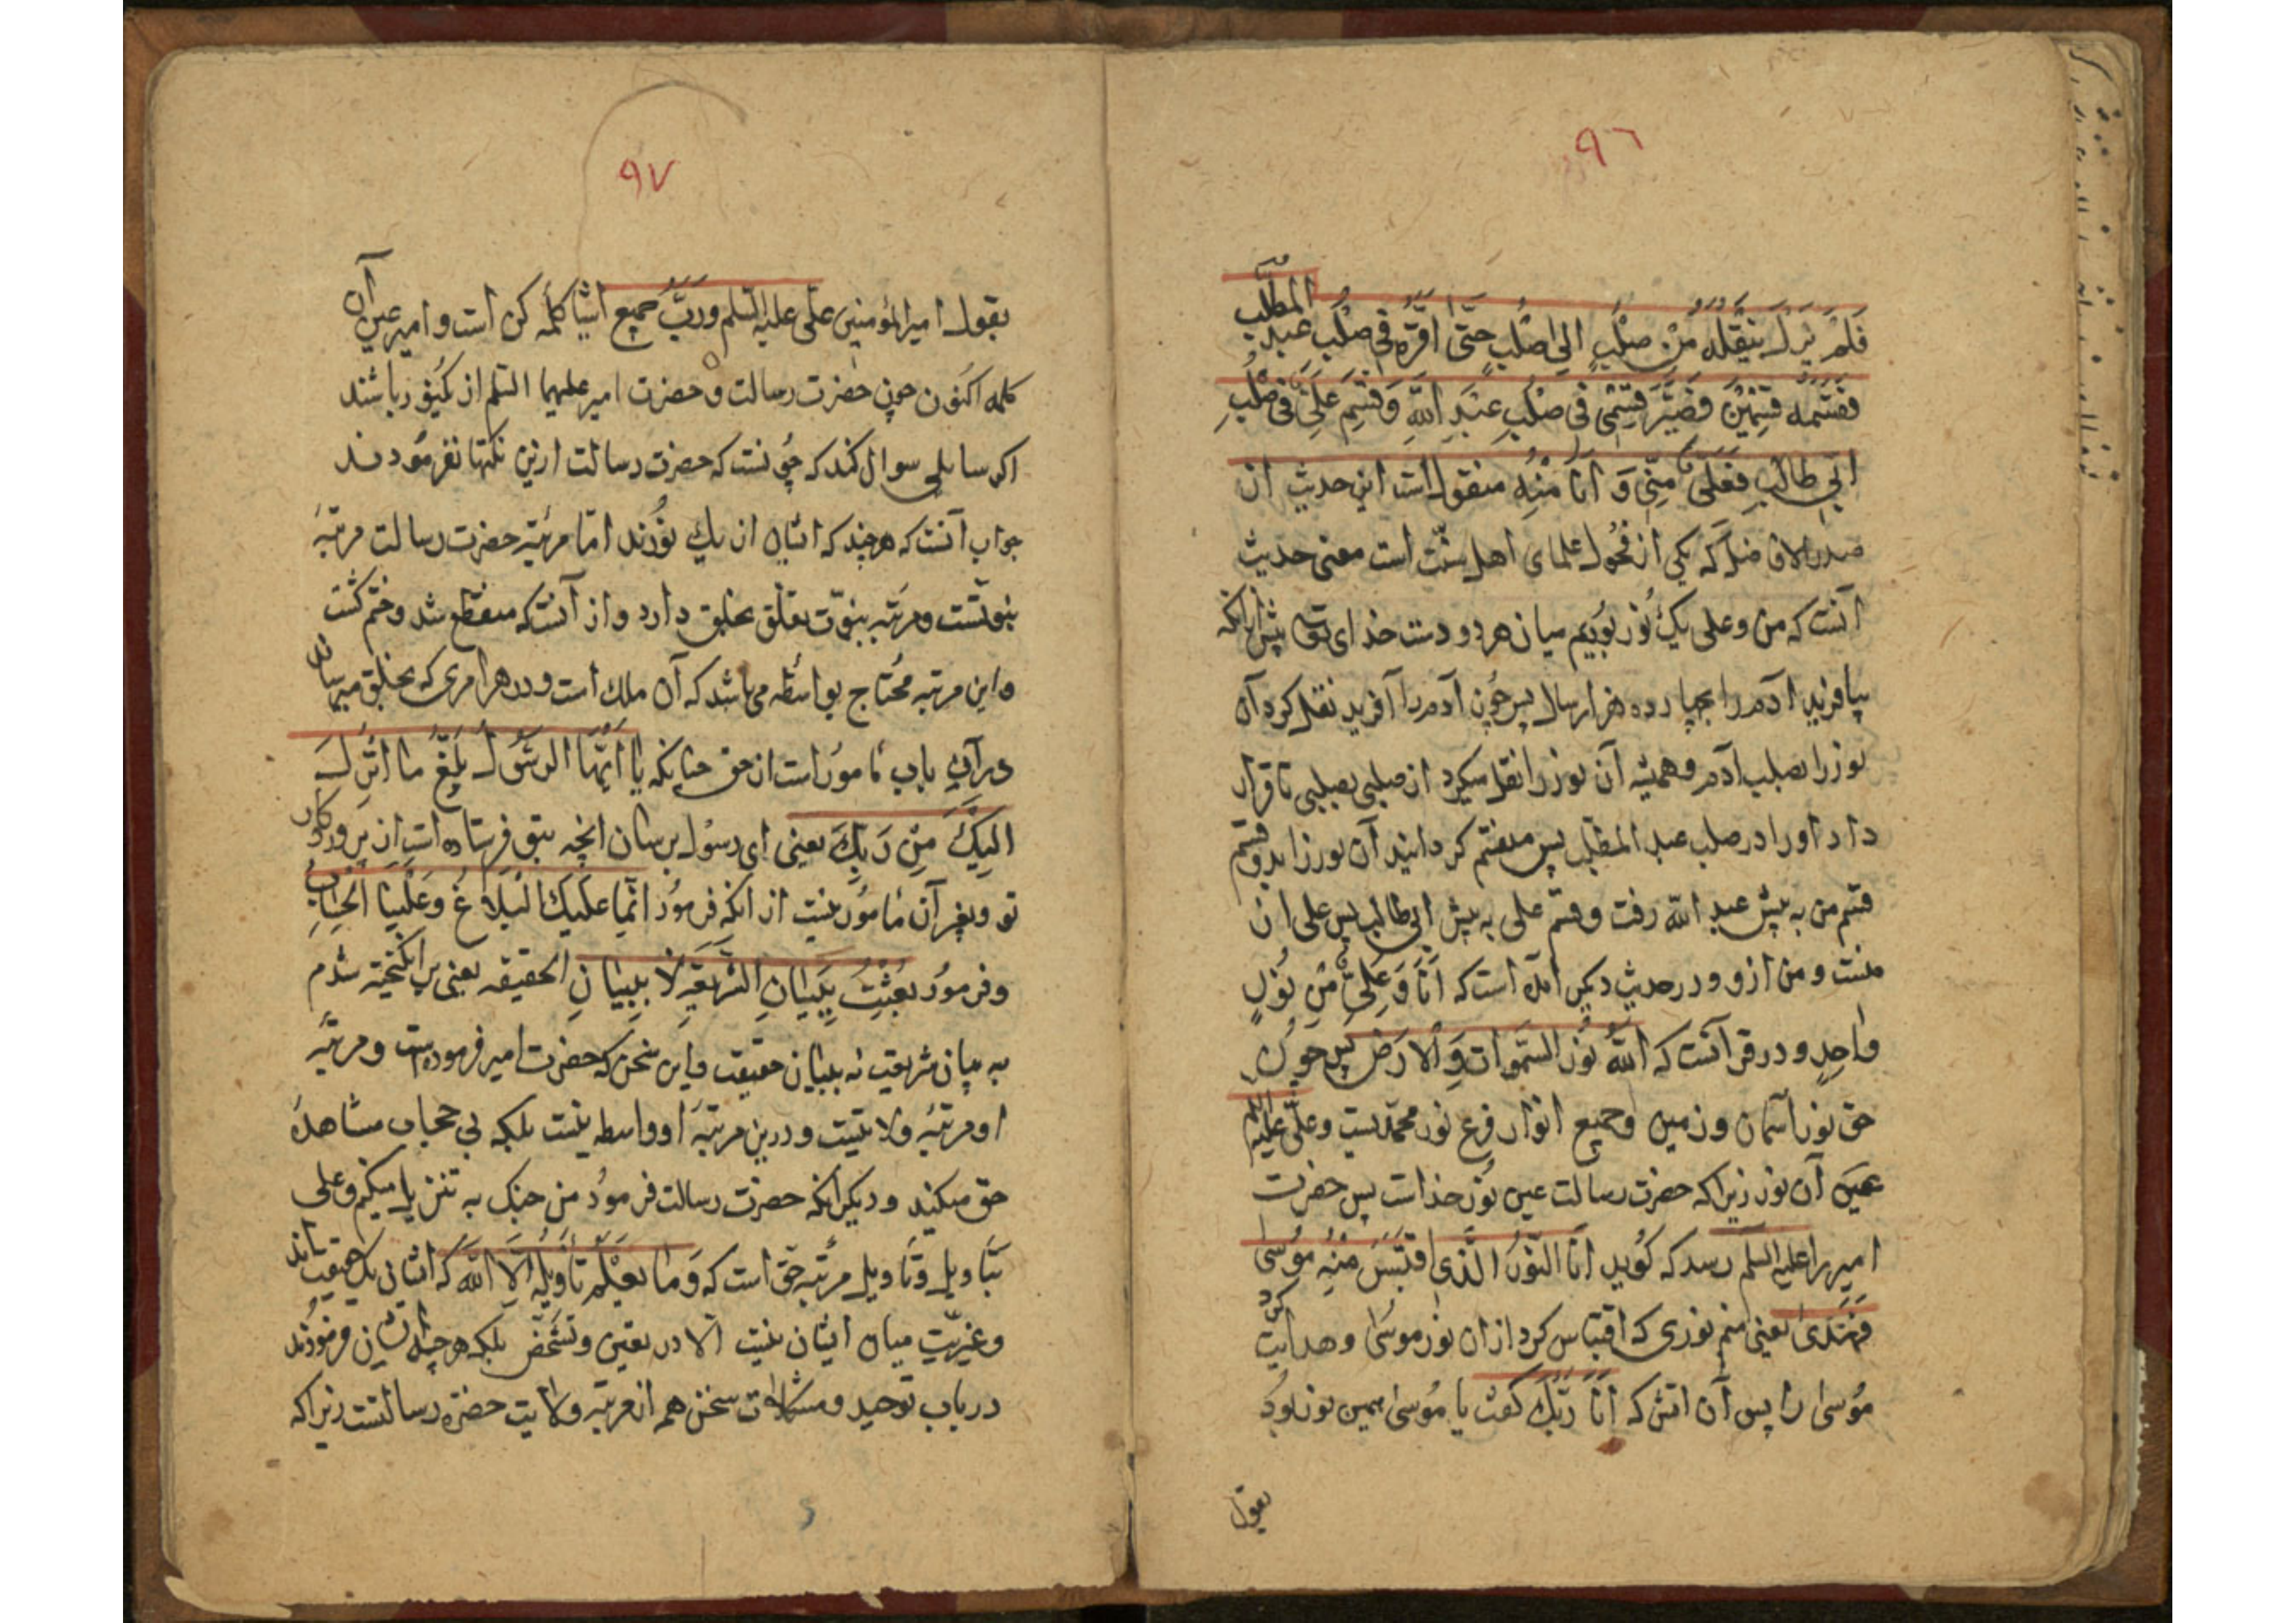 ٩٦
فَلَمْ يَزَلْ يَنْقُلُهُ مِنْ صُلْبٍ اِلیٰ صُلْبٍ حَتّیٰ اَقَرَّهُ فِی صُلْبِ عَبْدِ المطّلب
فَقَسَّمَهُ قِسْمَیْنِ فَصَیَّرَ قِسْمِی فی صُلْبِ عَبْدِ اللّهِ وَ قِسْمَ عَلِیٍّ فی صُلْبِ
اَبِی طالِبٍ فَعَلِیٌّ مِنّی وَ اَنَا مِنْهُ منقول است این حدیث از
صدر الافاضل که یکی از فحول علمای اهل سنّت است معنی حدیث
آنست که من و علی یک نُور بُودیم میان هر دو دست خدای تع پیش از انکه
بیافریند آدم را بچهارده هزار سال پس چون آدم را آفرید نقل کرد آن
نور را بصلب آدم و همیشه آن نور را نقل میکرد از صلبی بصلبی تا قرار
داد او را در صلب عبد المطّلب پس منقسم کردانید آن نور را بدو قسم
قسم من به پیش عبد الله رفت و قسم علی به پیش ابی طالب پس علی از
منست و من از و و در حدیث دیگر آمده است که اَنَا وَ عَلِیٌّ مِنْ نُورٍ
واحِدٍ و در قرآنست که اَللّهُ نُورُ السَّموات وَ الْاَرْض پس چون
حق نور آسمان و زمین و جمیع انوار فرع نور محمّدیست و علی علیه السلم
عین آن نور زیرا که حضرت رسالت عین نور خداست پس حضرت
امیر را علیه السلم رسد که کوید اَنَا النُّورُ الَّذی اقْتَبَسَ مِنْهُ مُوسیٰ
فَهَتَدیٰ یعنی منم نوری که اقتباس کرد از ان نور موسیٰ و هدایت کرد
مُوسیٰ را پس آن اتش که اَنَا رَبُّکَ کفت یا مُوسیٰ همین نور بُود
بقول
٩٧
بقول امیر المؤمنین علی علیه السّلم و رَبُّ جمیع اشیا کلمهٔ کن است و امیر عین آن
کلمه اکنون چون حضرت رسالت و حضرت امیر علیهما السّلم از یک نور باشند
اکر سایلی سوال کند که چونست که حضرت رسالت ازین نکتها نفرمودند
جواب آنست که هر چند که ایشان از یک نُورند امّا مرتبهٔ حضرت رسالت مرتبهٔ
نبوتست و مرتبه نبوّت تعلّق بخلق دارد و از آنست که منقطع شد و ختم کشت
و این مرتبه مُحتاج بواسطه می باشد که آن ملک است و در هر امری که بخلق میرساند
در آن باب مامور است از حق چنانکه یا اَیُّهَا الرَّسُولُ بَلِّغْ ما اُنْزِلَ
اِلَیْکَ مِنْ رَبِّکَ یعنی ای رسُول برسان انچه بتو فرستاده است از پروردکار
تو و بغیر آن مامور نیست از انکه فرمود انّما علیک البلاغ و علینا الحساب
و فرمود بُعِثْتُ بِبَیانِ الشَّریعَةِ لا بِبَیانِ الحقیقه یعنی بر انکیخته شدم
به بیان شریعت نه ببیان حقیقت و این سخن که حضرت امیر فرموده است و مرتبهٔ
او مرتبهٔ ولایتست و درین مرتبه او واسطه نیست بلکه بی حجاب مشاهدهٔ
حق میکند و دیکر انکه حضرت رسالت فرمود من جنک به تنزیل میکنم و علی
بتأویل و تأویل مرتبه حق است که وَ ما یَعْلَمُ تَأْویلَهُ اِلَّا اللّه که ایشان یک حقیقت اند
و غیریّت میان ایشان نیست الّا در تعین و تشخّص بلکه هر چه ایشان فرمودند
در باب توحید و مشکلات سخن هم از مرتبه ولایت حضرة رسالتست زیرا که